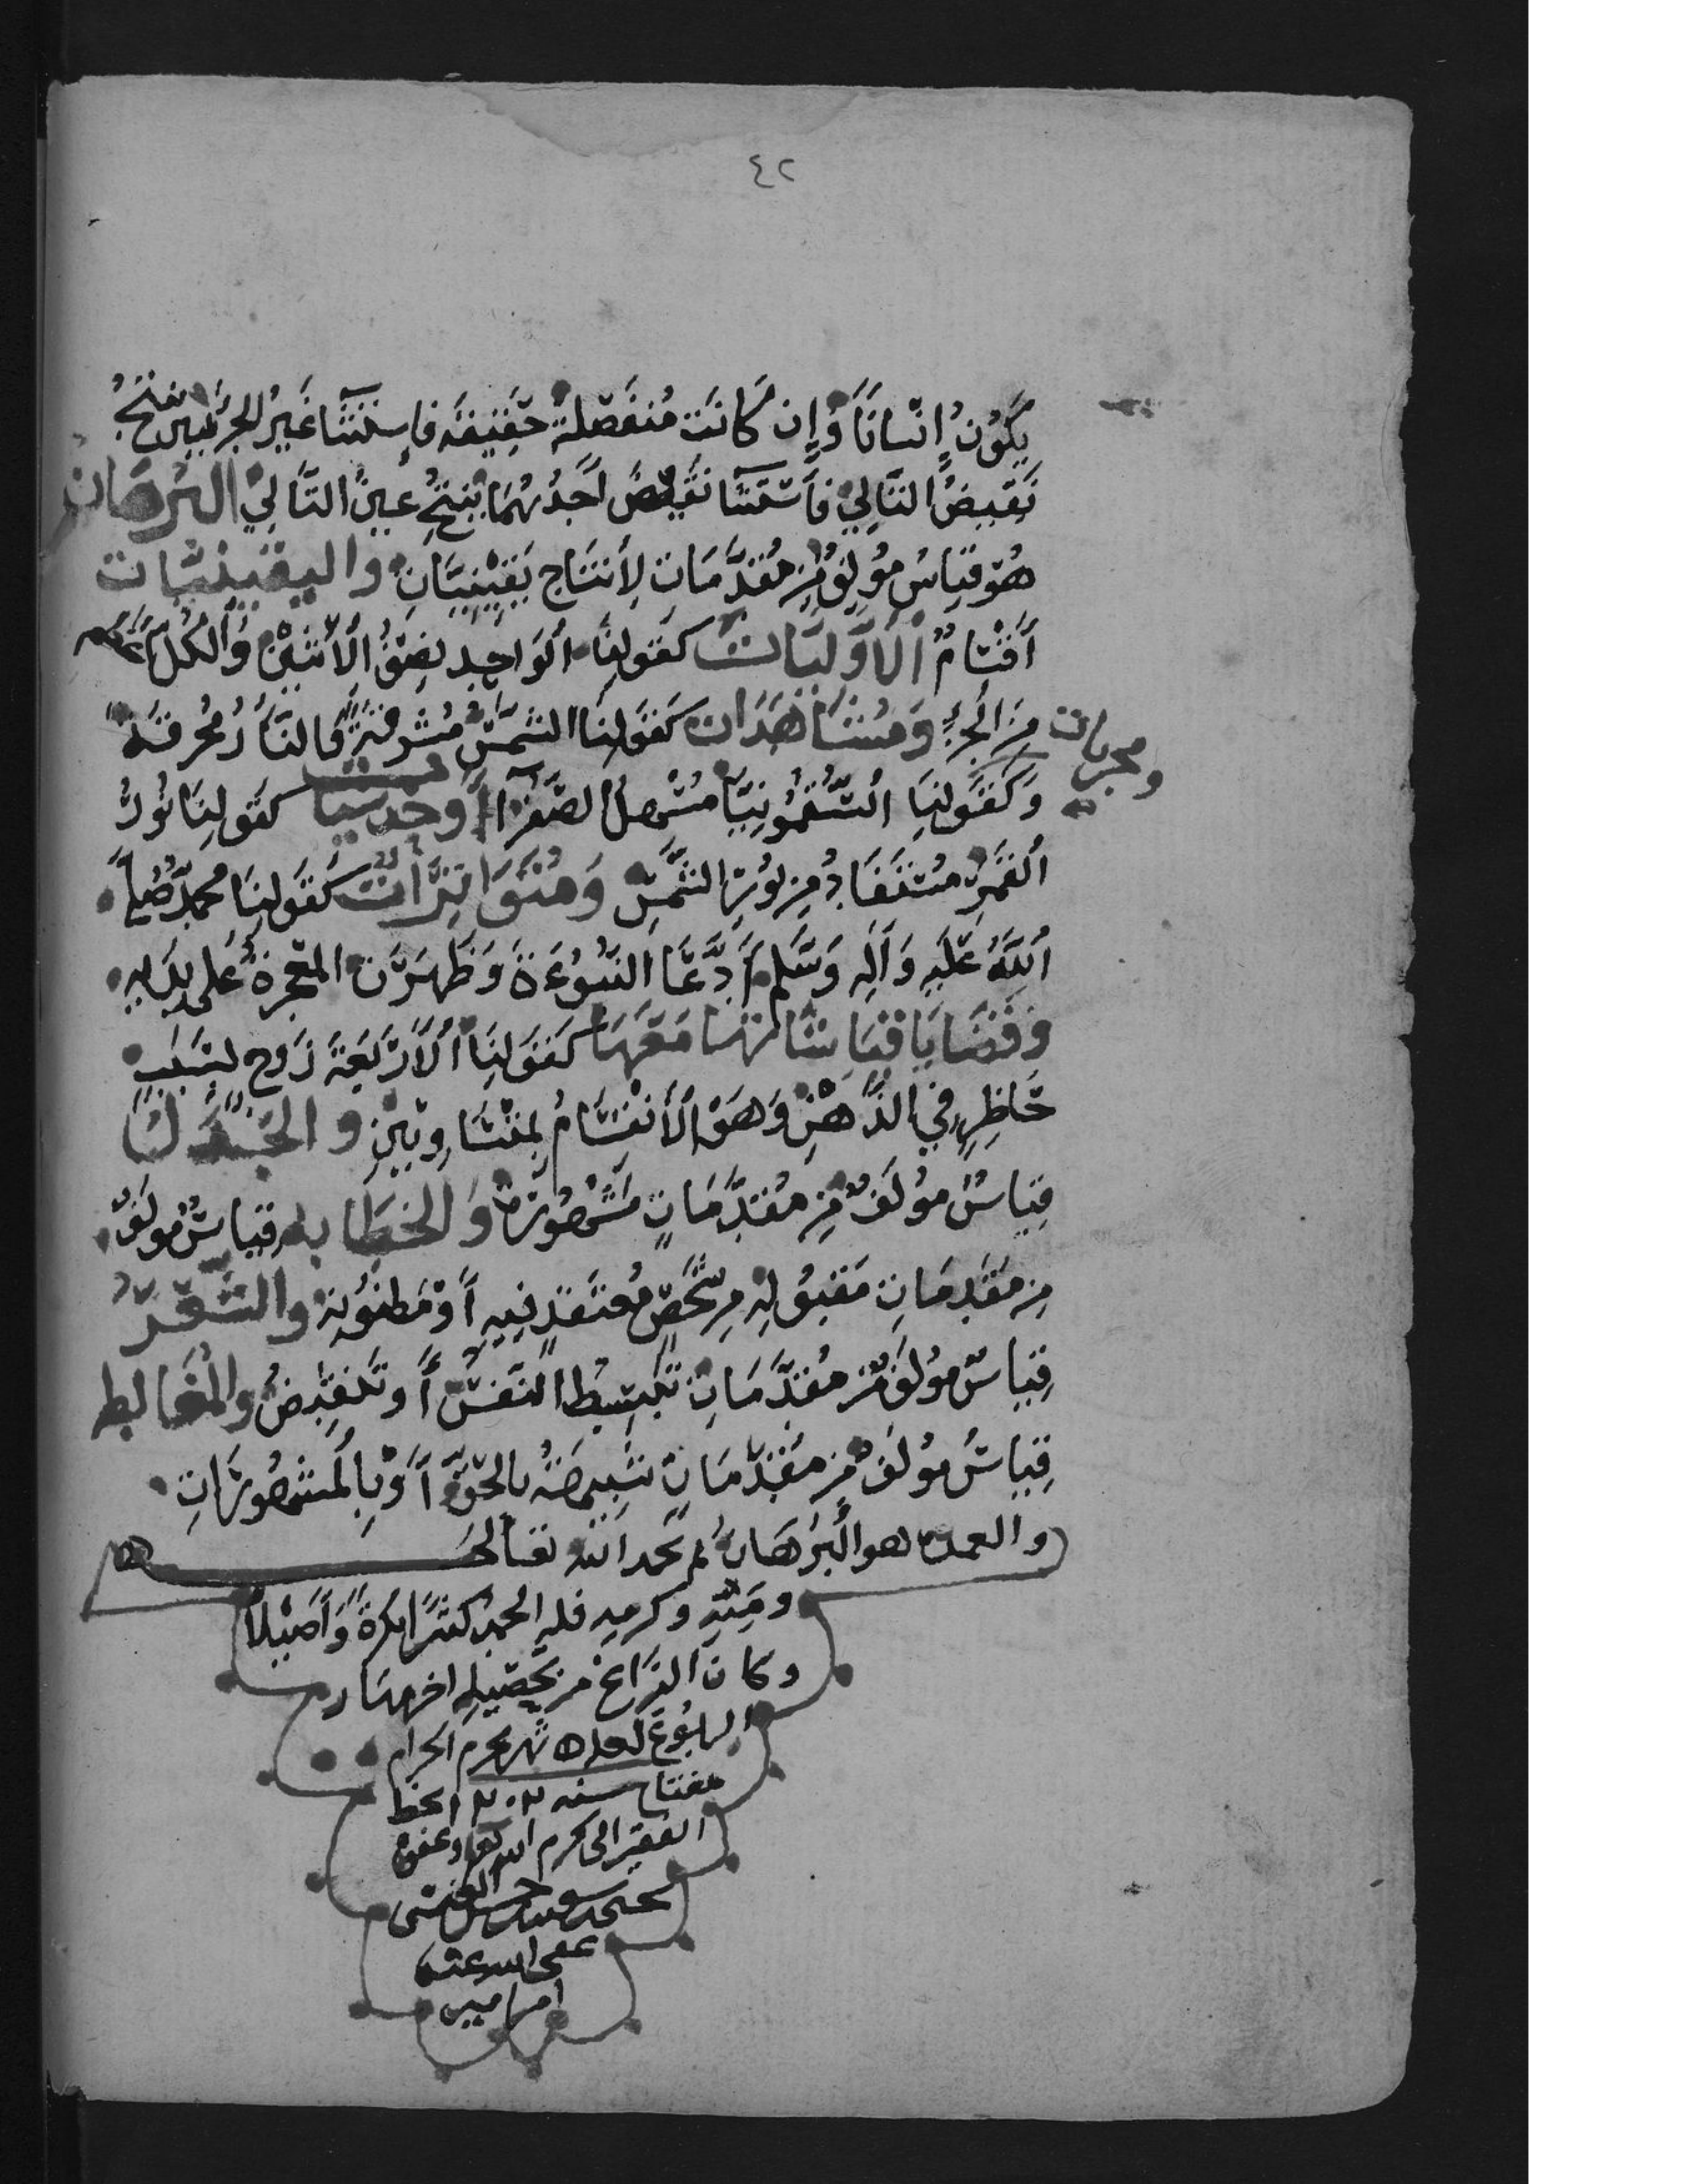 ٤٢
يكون إنسانا وإن كانت منفصلة حقيقة فاستثنا عين الجزئين ينتج
نقيض التالي فاستثنا نقيض أحدهما ينتج عين التالي البرهان
هو قياس مؤلف من مقدمات لانتاج يقينيات واليقينيات
أقسام الأوليات كقولنا الواحد نصف الاثنين والكل أعظم
من الجزء ومشاهدات كقولنا الشمس مشرقة والنار محرقة
ومجربات
وكقولنا السقمونيا مسهل الصفرا وحدسيا كقولنا نور
القمر مستفاد من نور الشمس ومتواترات كقولنا محمد صلى
الله عليه وآله وسلم أدعا النبوءة وظهرت المعجزة على يديه
وقضايا قياساتها معها كقولنا الأربعة زوج لسبب
حاظر في الذهن وهو الأنقسام بمتساويين والجدل
قياس مؤلف من مقدمات مشهورة والخطابه قياس مولف
من مقدمات مقبوله من شخص معتقد فيه أو مظنونه والشعر
قياس مؤلف من مقدمات تنبسط النفس أو تنقبض والمغالطه
قياس مؤلف من مقدمات شبيهة بالحق أو بالمشهورات
والعمدة هو البرهان تم بحمد الله تعالى
ومنه وكرمه فله الحمد كثيرا بكرة وأصيلا
وكان الفراغ من تحصيله اخر نهار
الربوع شهر محرم الحرام
مفتاح سنه بخط
الفقير الى كرم الله وعفوه
عفى الله عنه
امين